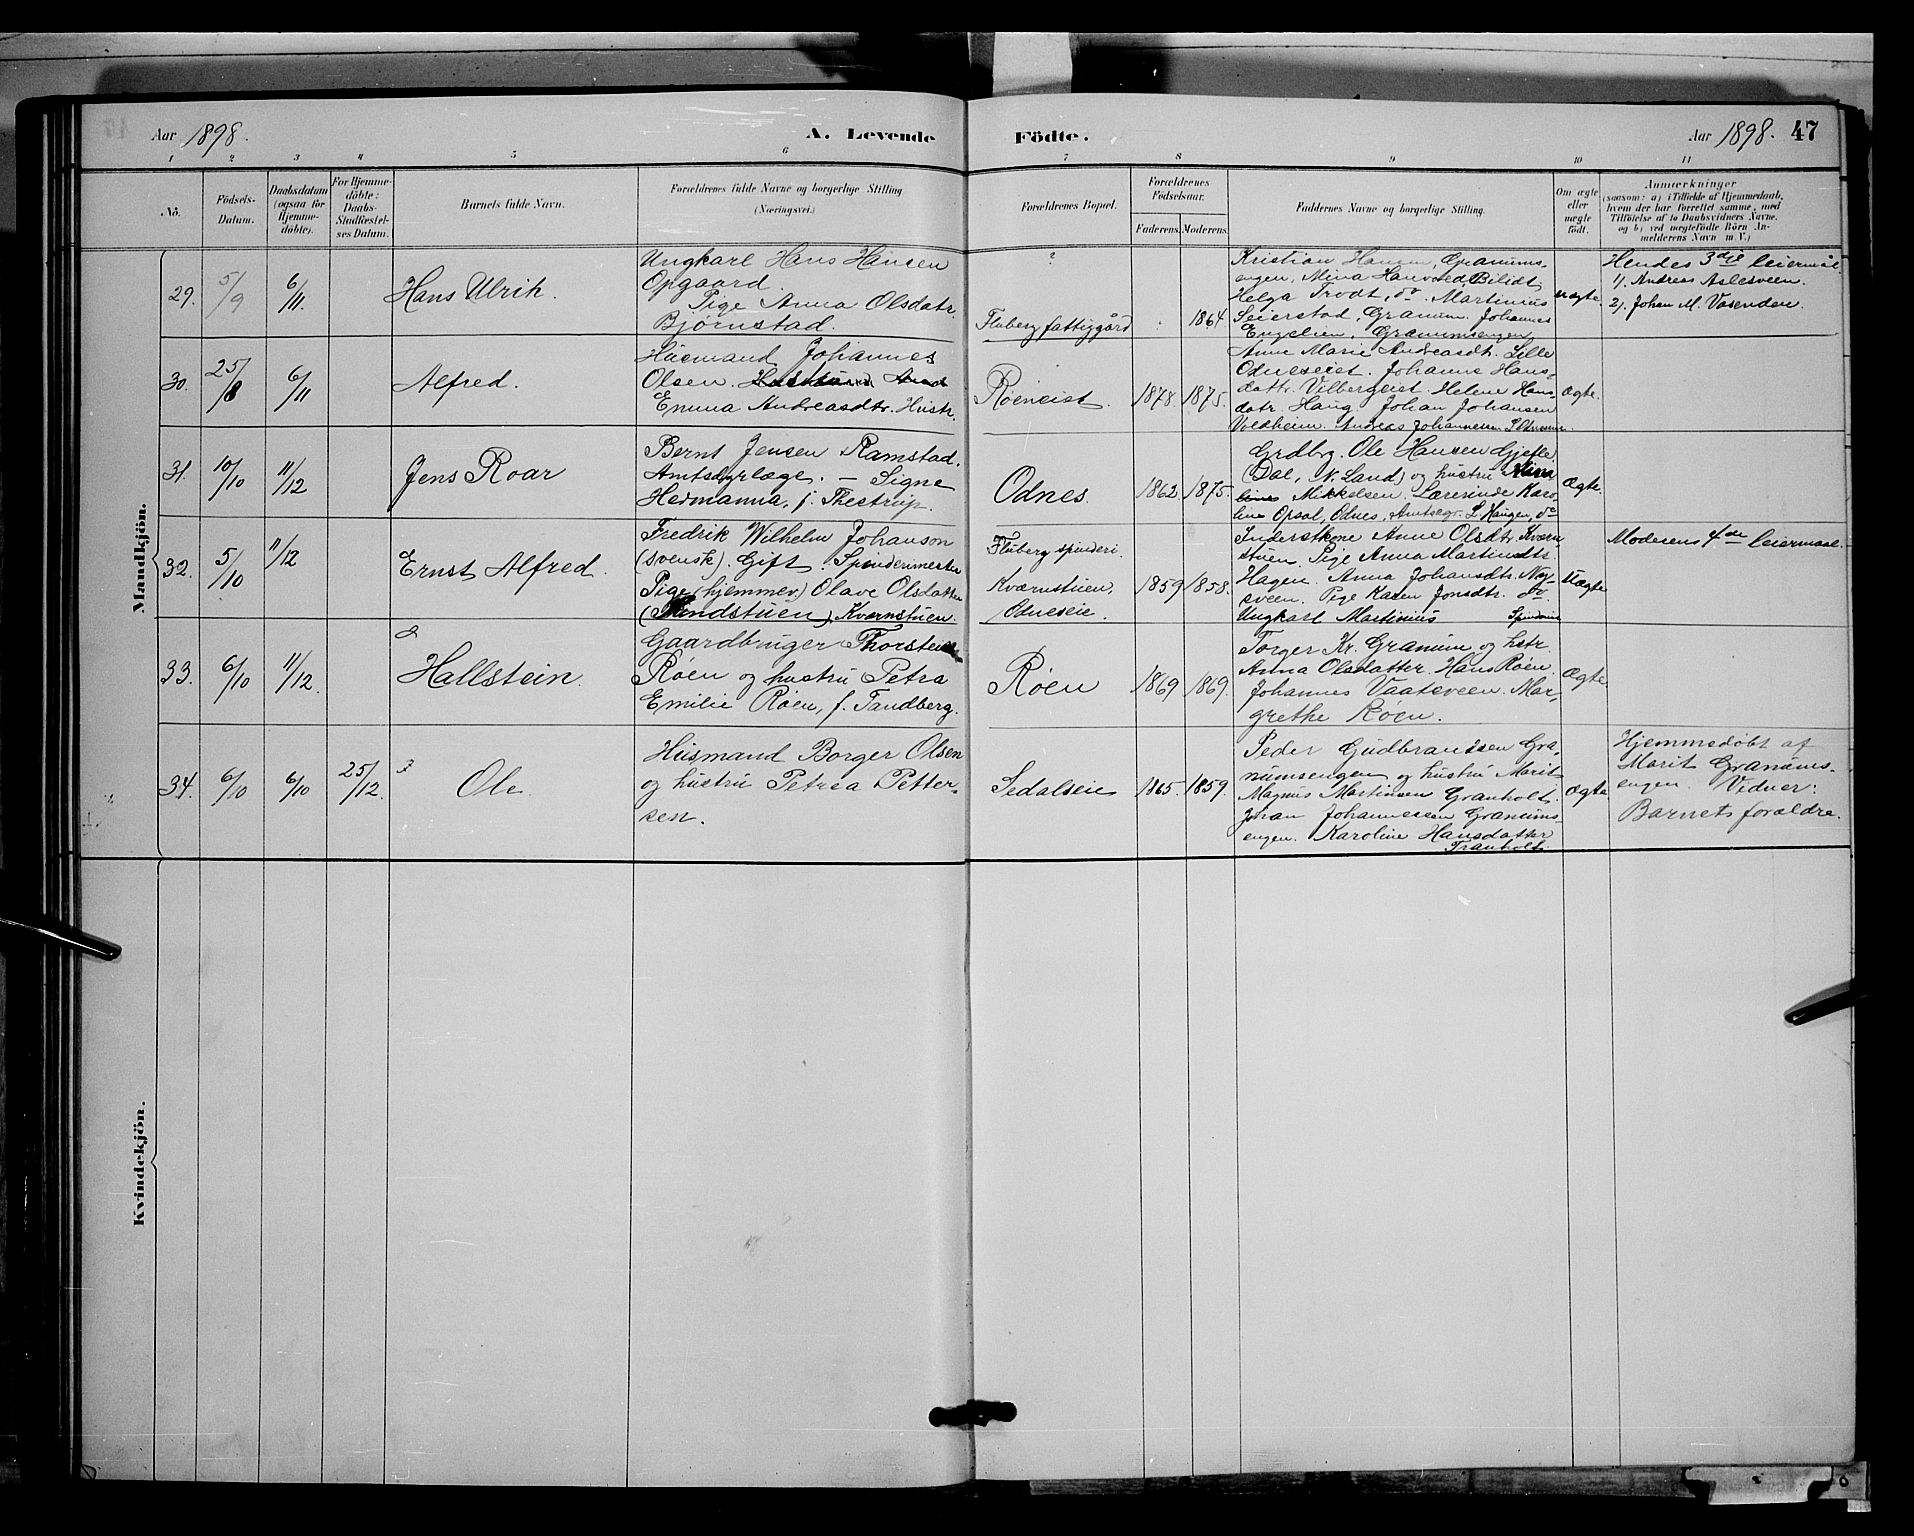 Aar 1898.
A. Levende Födte.
Aar 1898. 47
1 2 3 4 5 6 7 8 9 10 11
No.
Födsels-
Datum.
Daabsdatum
(ogsaa for
Hjemme-
döbte).
For Hjemme-
döbte:
Daabs-
Stadfæstel-
ses Datum.
Barnets fulde Navn.
Forældrenes fulde Navne og borgerlige Stilling
(Næringsvei.)
Forældrenes Bopæl.
Forældrenes
Födselsaar.
Faderens. Moderens.
Faddernes Navne og borgerlige Stilling.
Om ægte
eller
uægte
födt.
Anmærkninger
(saasom: a) i Tilfælde af Hjemmedaab,
hvem der har forrettet samme, med
Tilföielse af to Daabsvidners Navne.
og b) ved uægtefödte Börn An-
melderens Navn m. V.)
Mandkjön.
29.
5/9
6/11
Hans Ulrik.
Ungkarl Hans Hansen
Opgaard.
Pige Anna Olsdatr.
Bjørnstad.
?
Fluberg fattiggård
1864
Kristian Haugen, Granums-
engen, Mina Bilidt
Helga Trodt, do. Martinius
Seierstad, Granum. Johannes
Engelien, Granumsengen
uægte.
Hendes 3die leiermål
1). Andreas Aslesveen.
2). Johan M. Vasenden.
30.
25/8
6/11
Alfred.
Husmand Johannes
Olsen.
Emma Andreasdtr. Hustr.
Røeneiet.
1878. 1875.
Anne Marie Andreasdt. Lille
Odneseiet. Johanne Hans-
datr. Vilbergeiet. Helene Hans-
datr. Haug. Johan Johansen
Voldheim. Andreas Johannesen
Ægte.
31.
10/10
11/12
Jens Roar
Bernt Jensen Ramstad.
Amtsdyrlæge. – Signe
Hermanna, f. Thestrup.
Odnes.
1862. 1875.
Grdbrg. Ole Hansen Gjefle
(Dal, N. Land) og hustru
Mikkelsen. Lærerinde Karo-
line Opsal, Odnes, L. Haugen, do
Ægte.
32.
5/10
11/12
Ernst Alfred.
Fredrik Wilhelm Johanson
(svensk). Gift. Spinderimester
Pige (hjemmev.) Olave Olsdatter
Kværnstuen.
Fluberg spinderi.
Kværnstuen,
Odneseie.
1859 1858.
Inderstkone Anne Olsdtr. Kværn-
stuen. Pige Anna Martinsdtr.
Hagen. Anna Johansdtr.
sveen. Pige Karen Jonsdtr. do.
Ungkarl Martinius
Uægte
Moderens 4de leiermaal.
33.
6/10
11/12.
Hallstein.
Gaardbruger Thorstein
Røen og hustru Petra
Emilie Røen, f. Tandberg.
Røen
1869 1869.
Torger Kr. Granum og hstr.
Anna Olsdatter. Hans Røen.
Johannes Vaatsveen. Mar-
grethe Røen.
Ægte.
34.
6/10
6/10
25/12.
Ole.
Husmand Borger Olsen
og hustru Petrea Petter-
sen.
Sedalseie
1865. 1859.
Peder Gudbransen Gra-
numsengen og hustru Marit
Magnus Martinsen Granholt.
Johan Johannessen Granums-
engen. Karoline Hansdatter
Tranholt.
Ægte
Hjemmedøbt af
Marit Granums-
engen. Vidner:
Barnets forældre.
Kvindekjön.